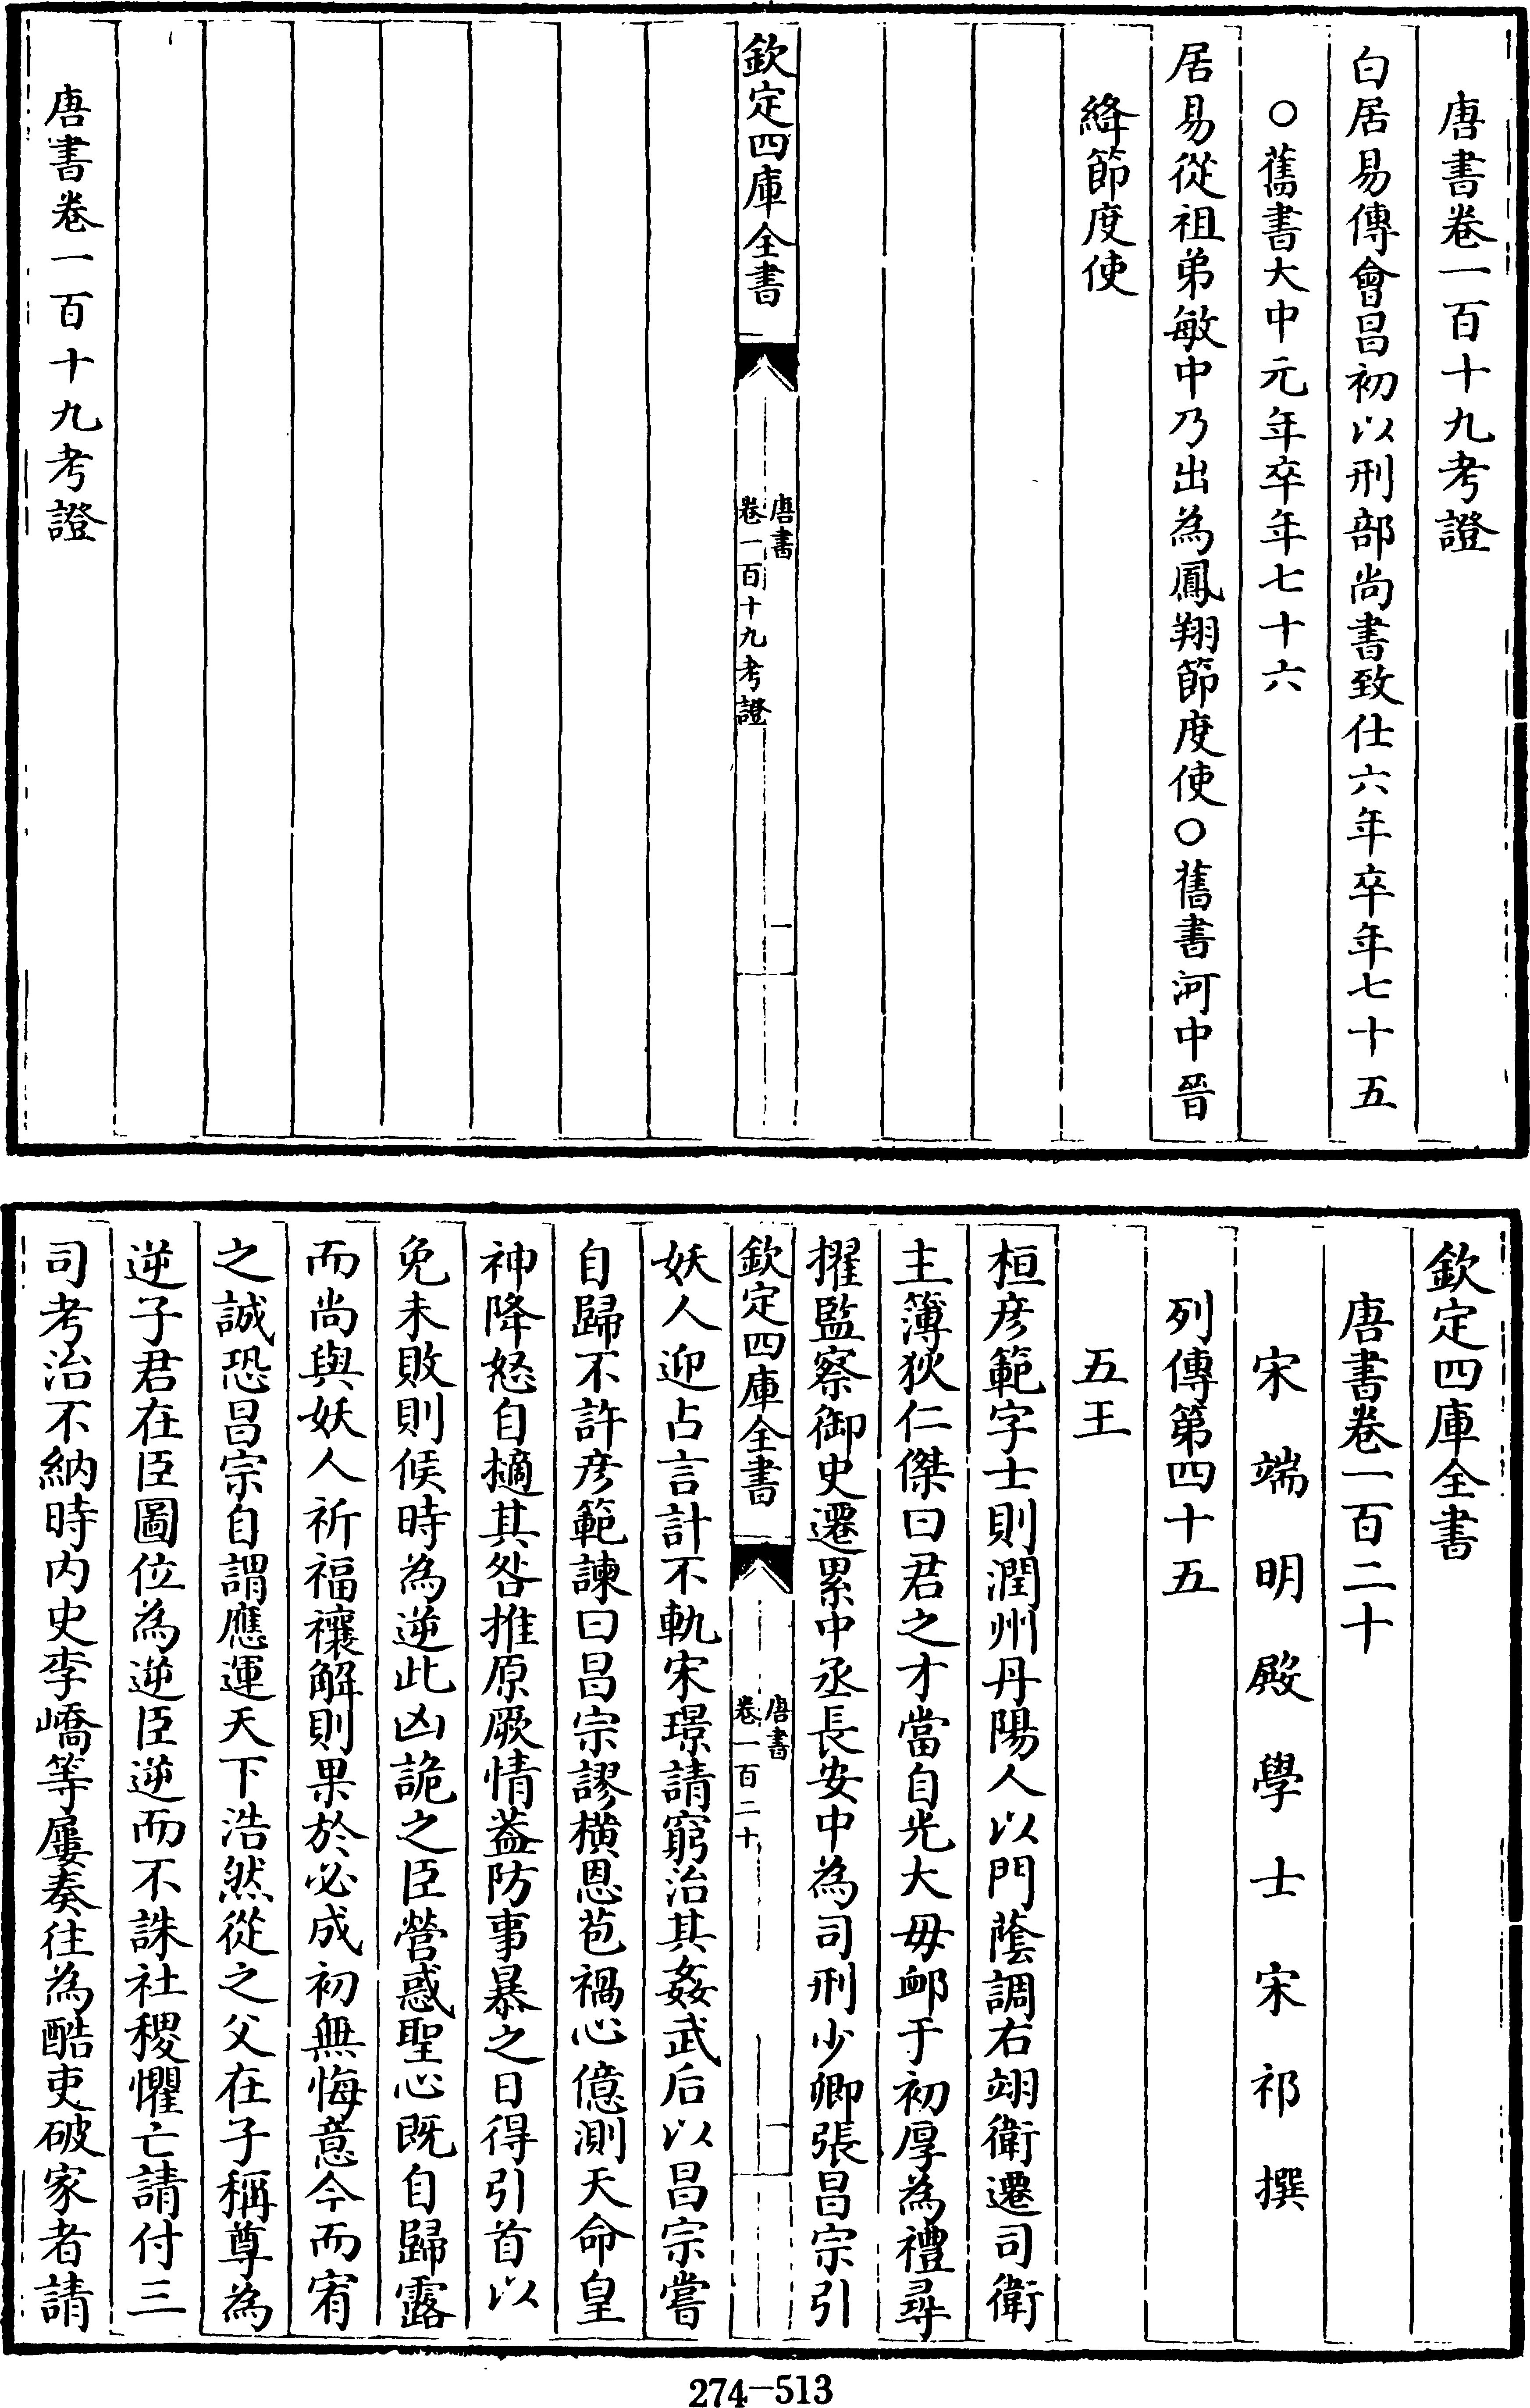 唐書卷一百十九考證
白居易傳會昌初以刑部尚書致仕六年卒年七十五
○舊書大中元年卒年七十六
居易從祖弟敏中乃出為鳳翔節度使○舊書河中晉
絳節度使
欽定四庫全書
唐書
卷一百十九考證
一
唐書卷一百十九考證
欽定四庫全書
唐書卷一百二十
宋端明殿學士宋祁撰
列傳第四十五
五王
桓彦範字士則潤州丹陽人以門蔭調右翊衛遷司衛
主簿狄仁傑曰君之才當自光大毋䘏于初厚為禮尋
擢監察御史遷累中丞長安中為司刑少卿張昌宗引
欽定四庫全書
唐書
卷一百二十
一
妖人迎占言計不軌宋璟請窮治其姦武后以昌宗嘗
自歸不許彦範諫曰昌宗謬横恩苞禍心億測天命皇
神降怒自擿其咎推原厥情葢防事暴之日得引首以
免未敗則候時為逆此凶詭之臣營惑聖心既自歸露
而尚與妖人祈福禳解則果於必成初無悔意今而宥
之誠恐昌宗自謂應運天下浩然從之父在子稱尊為
逆子君在臣圖位為逆臣逆而不誅社稷懼亡請付三
司考治不納時内史李嶠等屢奏往為酷吏破家者請
274-513